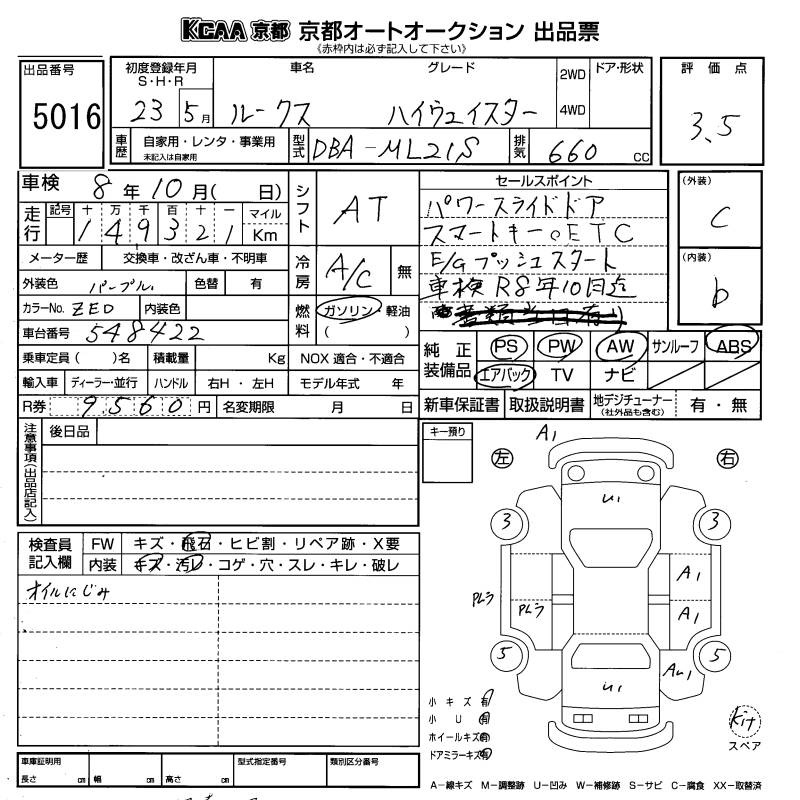 KCAA 京都 京都オートオークション 出品票
《赤枠内は必ず記入して下さい》
出品番号
5016
初度登録年月
S・H・R
23 5月
車名
ルークス
グレード
ハイウェイスター
2WD
4WD
ドア・形状
評価点
3.5
車歴
自家用・レンタ・事業用
未記入は自家用
型式
DBA-ML21S
排気
660 cc
車検 8年10月( 日)
走行
記号 十 万 千 百 十 一 マイル
1 4 9 3 2 1 Km
メーター歴 交換車・改ざん車・不明車
外装色 パープル
色替 有
カラーNo. ZED
内装色
車台番号 548422
乗車定員 ( )名
積載量 Kg
輸入車 ディーラー・並行
ハンドル 右H・左H
R券 9560円
名変期限 月 日
シフト
AT
冷房
A/C
無
燃料
ガソリン 軽油
( )
NOX 適合・不適合
モデル年式 年
セールスポイント
パワースライドドア
スマートキー。ETC
E/Gプッシュスタート
車検R8年10月迄
(外装)
C
(内装)
b
純正装備品
PS PW AW サンルーフ ABS
エアバック TV ナビ
新車保証書 取扱説明書 地デジチューナー
(社外品も含む)
有・無
注意事項(出品店記入)
後日品
キー預り
検査員記入欄
FW キズ・飛石・ヒビ割・リペア跡・X要
内装 キズ・汚レ・コゲ・穴・スレ・キレ・破レ
オイルにじみ
A1
左 右
U1
3 3
A1
PLラ PLラ
A1
5 5
AU1
U1
小キズ 有
小U 有
ホイールキズ 有
ドアミラーキズ 有
Kit
スペア
車庫証明用
長さ cm 幅 cm 高さ cm
型式指定番号
類別区分番号
A-線キズ M-調整跡 U-凹み W-補修跡 S-サビ C-腐食 XX-取替済